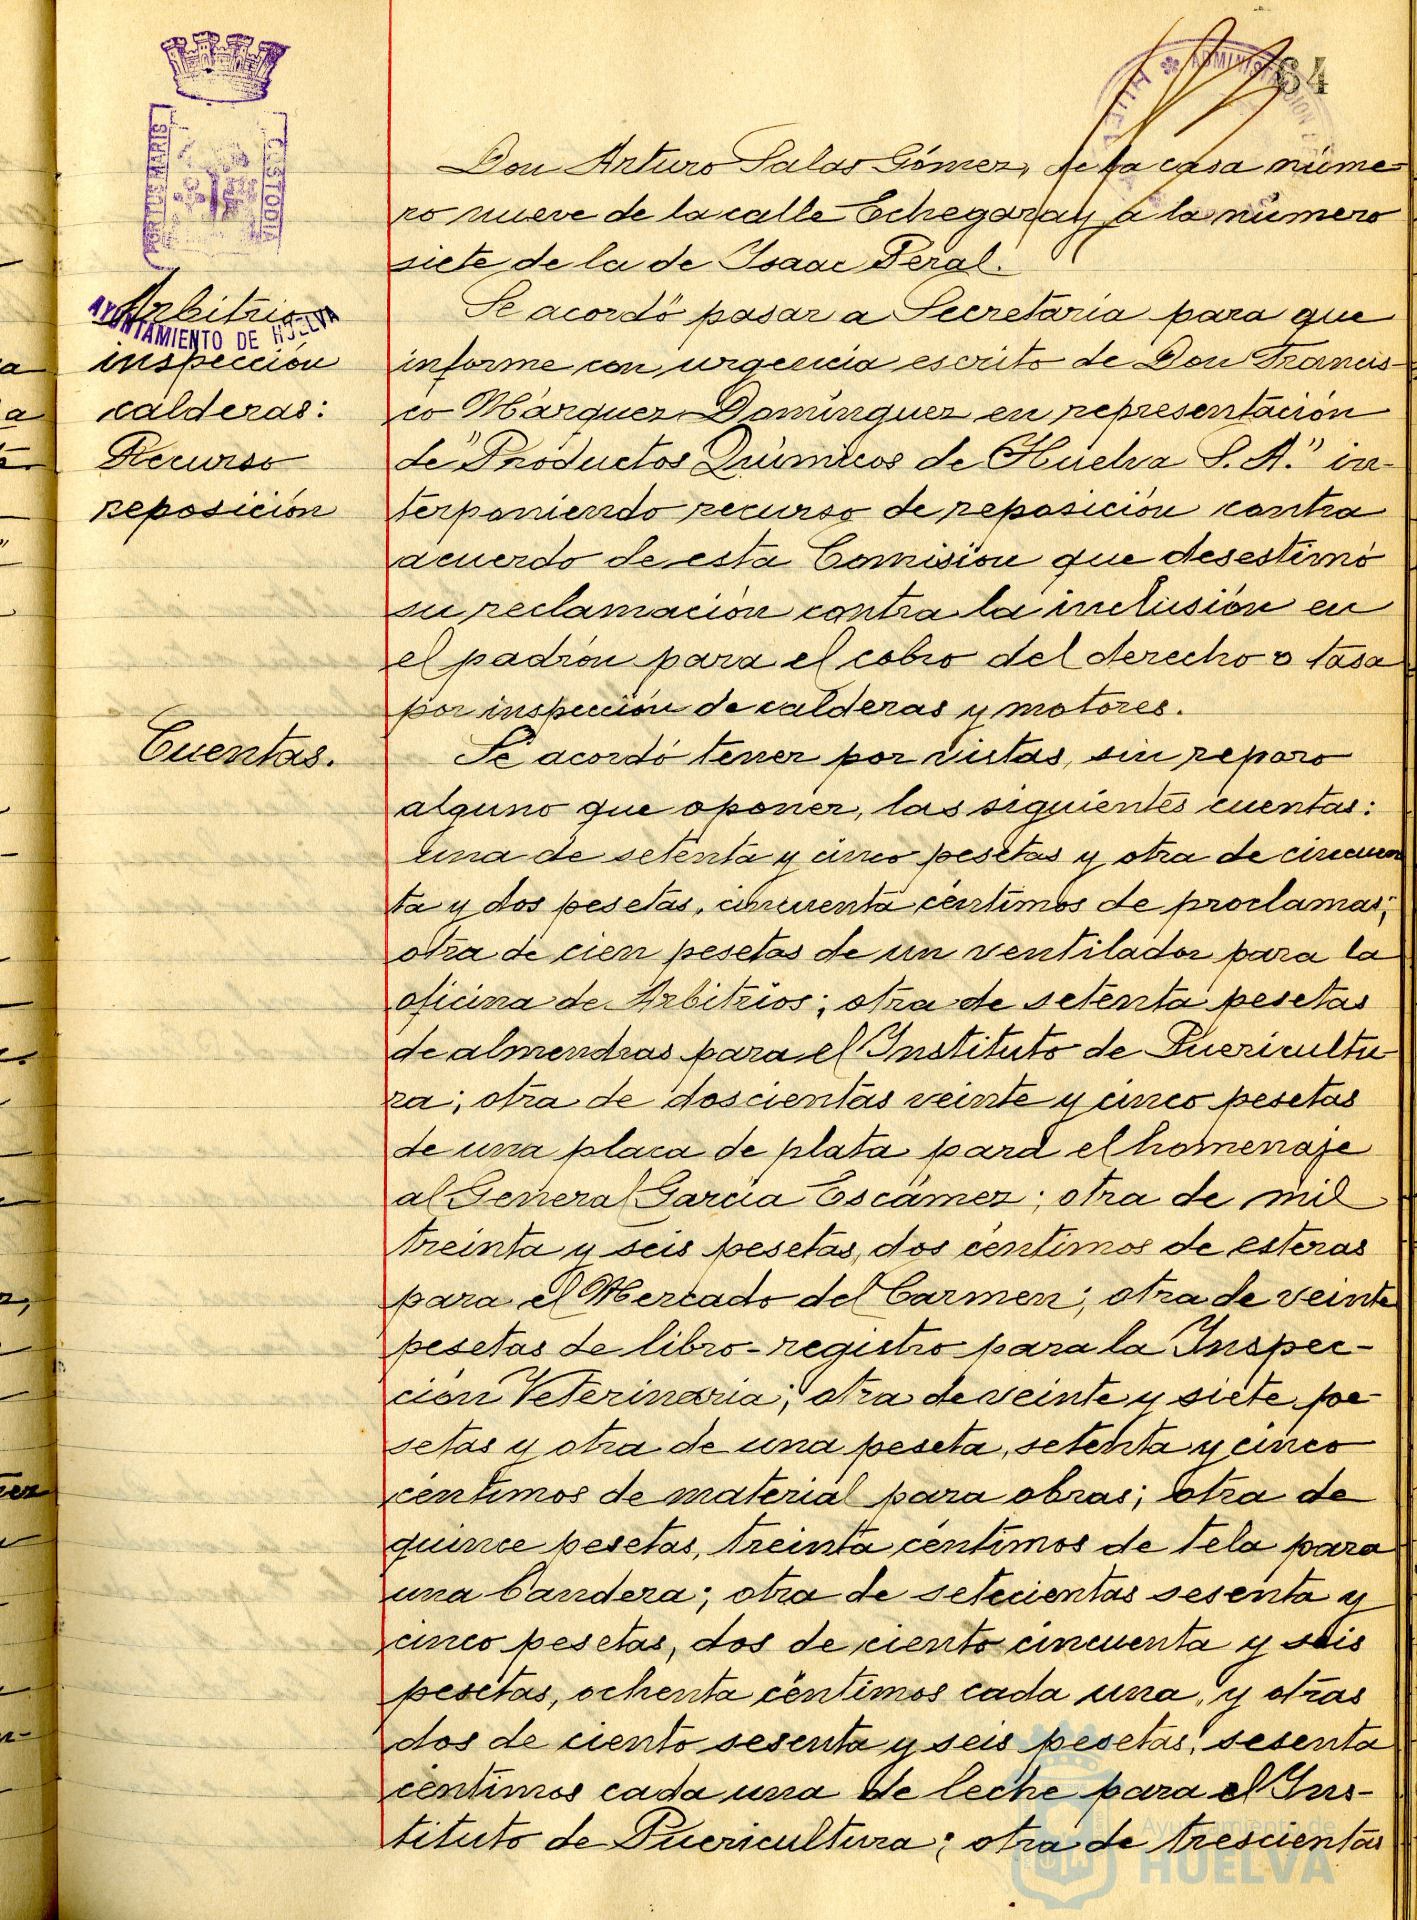 64
ADMINISTRACION
HUELVA
PORTUS MARIS
CUSTODIA
AYUNTAMIENTO DE HUELVA
Don Arturo Salas Gómez, de la casa núme-
ro nueve de la calle Echegaray a la número
siete de la de Isaac Peral.
Arbitrio
inspección
calderas:
Recurso
reposición
Se acordó pasar a Secretaría para que
informe con urgencia escrito de Don Francis-
co Márquez Domínguez en representación
de "Productos Químicos de Huelva S.A." in-
terponiendo recurso de reposición contra
acuerdo de esta Comisión que desestimó
su reclamación contra la inclusión en
el padrón para el cobro del derecho o tasa
por inspección de calderas y motores.
Cuentas.
Se acordó tener por vistas, sin reparo
alguno que oponer, las siguientes cuentas:
una de setenta y cinco pesetas y otra de cincuen
ta y dos pesetas, cincuenta céntimos de proclamas;
otra de cien pesetas de un ventilador para la
oficina de Arbitrios; otra de setenta pesetas
de almendras para el Instituto de Puericultu-
ra; otra de doscientas veinte y cinco pesetas
de una placa de plata para el homenaje
al General García Escámez; otra de mil
treinta y seis pesetas, dos céntimos de esteras
para el Mercado del Carmen; otra de veinte
pesetas de libro-registro para la Inspec-
ción Veterinaria; otra de veinte y siete pe-
setas y otra de una peseta, setenta y cinco
céntimos de material para obras; otra de
quince pesetas, treinta céntimos de tela para
una bandera; otra de setecientas sesenta y
cinco pesetas, dos de ciento cincuenta y seis
pesetas, ochenta céntimos cada una, y otras
dos de ciento sesenta y seis pesetas, sesenta
céntimos cada una de leche para el Ins-
tituto de Puericultura; otra de trescientas
Ayuntamiento de
HUELVA